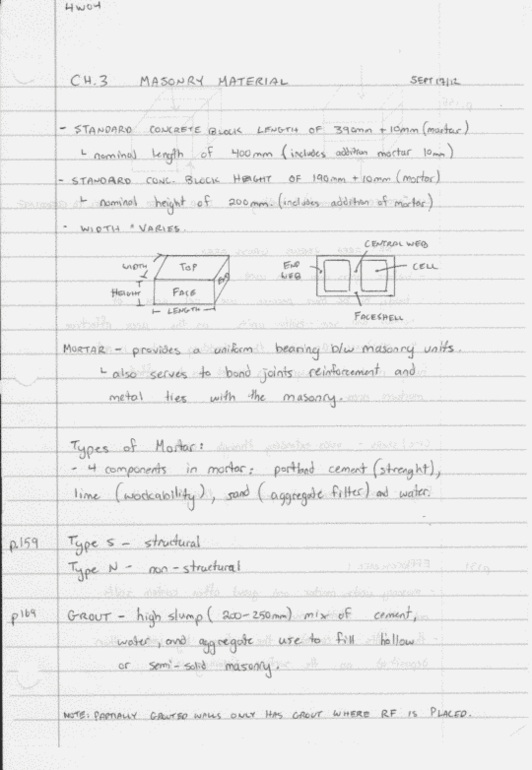 4W04
CH.3 MASONRY MATERIAL SEPT 17/12
- STANDARD CONCRETE BLOCK LENGTH OF 390mm + 10mm (mortar)
└ nominal length of 400mm (includes addition mortar 10mm)
- STANDARD CONC. BLOCK HEIGHT OF 190mm + 10mm (mortar)
└ nominal height of 200mm. (includes addition of mortar)
- WIDTH * VARIES.
WIDTH TOP END
HEIGHT FACE
LENGTH
CENTRAL WEB
END WEB CELL
FACESHELL
MORTAR - provides a uniform bearing b/w masonry units.
└ also serves to bond joints reinforcement and
metal ties with the masonry.
Types of Mortar:
- 4 components in mortar: portland cement (strenght),
lime (workability), sand (aggregate filter) and water.
p.159 Type S - structural
Type N - non-structural
p169 GROUT - high slump (200-250mm) mix of cement,
water, and aggregate use to fill hollow
or semi-solid masonry.
NOTE: PARTIALLY GROUTED WALLS ONLY HAS GROUT WHERE RF IS PLACED.